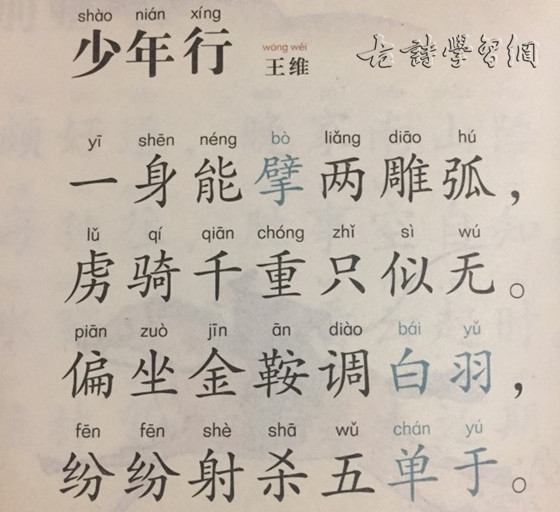 shào nián xíng
少年行
wáng wéi
王维
古詩學習網
yī shēn néng bò liǎng diāo hú
一身能擘两雕弧，
lǔ qí qiān chóng zhǐ sì wú
虏骑千重只似无。
piān zuò jīn ān diào bái yǔ
偏坐金鞍调白羽，
fēn fēn shè shā wǔ chán yú
纷纷射杀五单于。